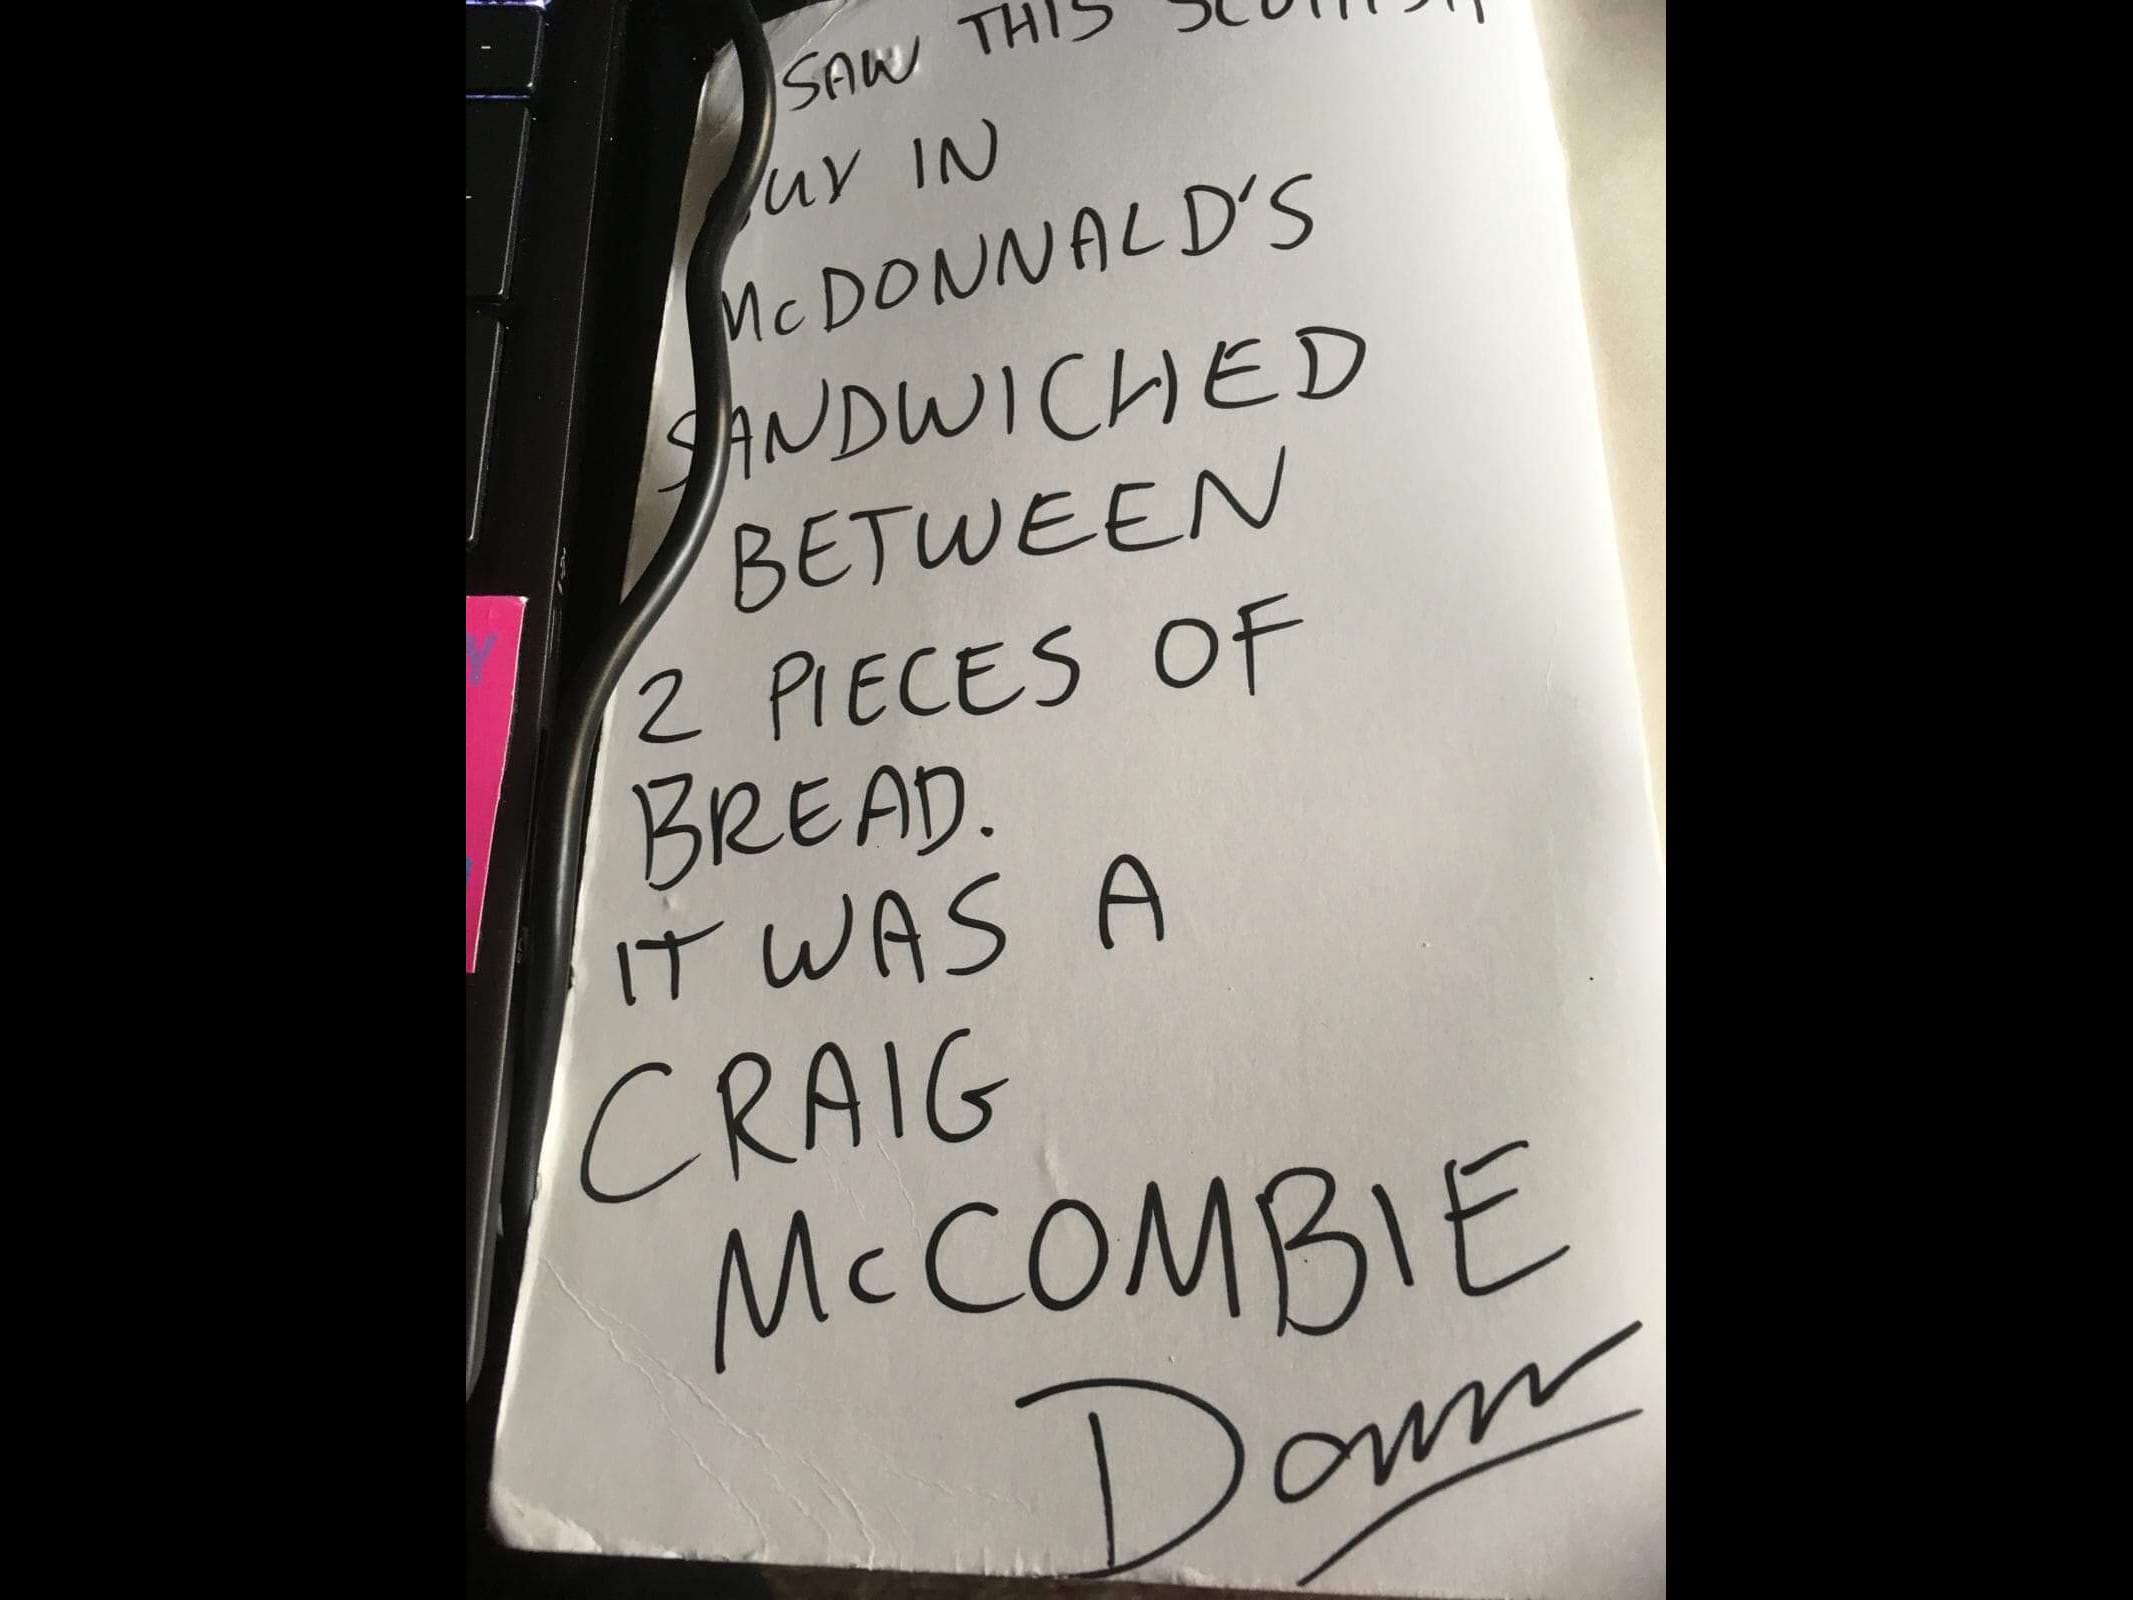 SAW THIS SCOTTISH
GUY IN
McDONNALD'S
SANDWICHED
BETWEEN
2 PIECES OF
BREAD.
IT WAS A
CRAIG
McCOMBIE
Y